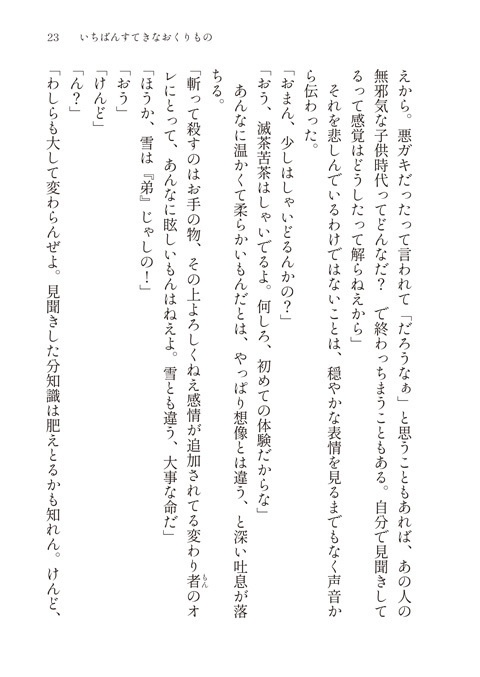 23　いちばんすてきなおくりもの
えから。悪ガキだったって言われて「だろうなぁ」と思うこともあれば、あの人の
無邪気な子供時代ってどんなだ？　で終わっちまうこともある。自分で見聞きして
るって感覚はどうしたって解らねえから」
　それを悲しんでいるわけではないことは、穏やかな表情を見るまでもなく声音か
ら伝わった。
「おまん、少しはしゃいどるんかの？」
「おう、滅茶苦茶はしゃいでるよ。何しろ、初めての体験だからな」
　あんなに温かくて柔らかいもんだとは、やっぱり想像とは違う、と深い吐息が落
ちる。
「斬って殺すのはお手の物、その上よろしくねえ感情が追加されてる変わり者のオ
もん
レにとって、あんなに眩しいもんはねえよ。雪とも違う、大事な命だ」
「ほうか、雪は『弟』じゃしの！」
「おう」
「けんど」
「ん？」
「わしらも大して変わらんぜよ。見聞きした分知識は肥えとるかも知れん。けんど、